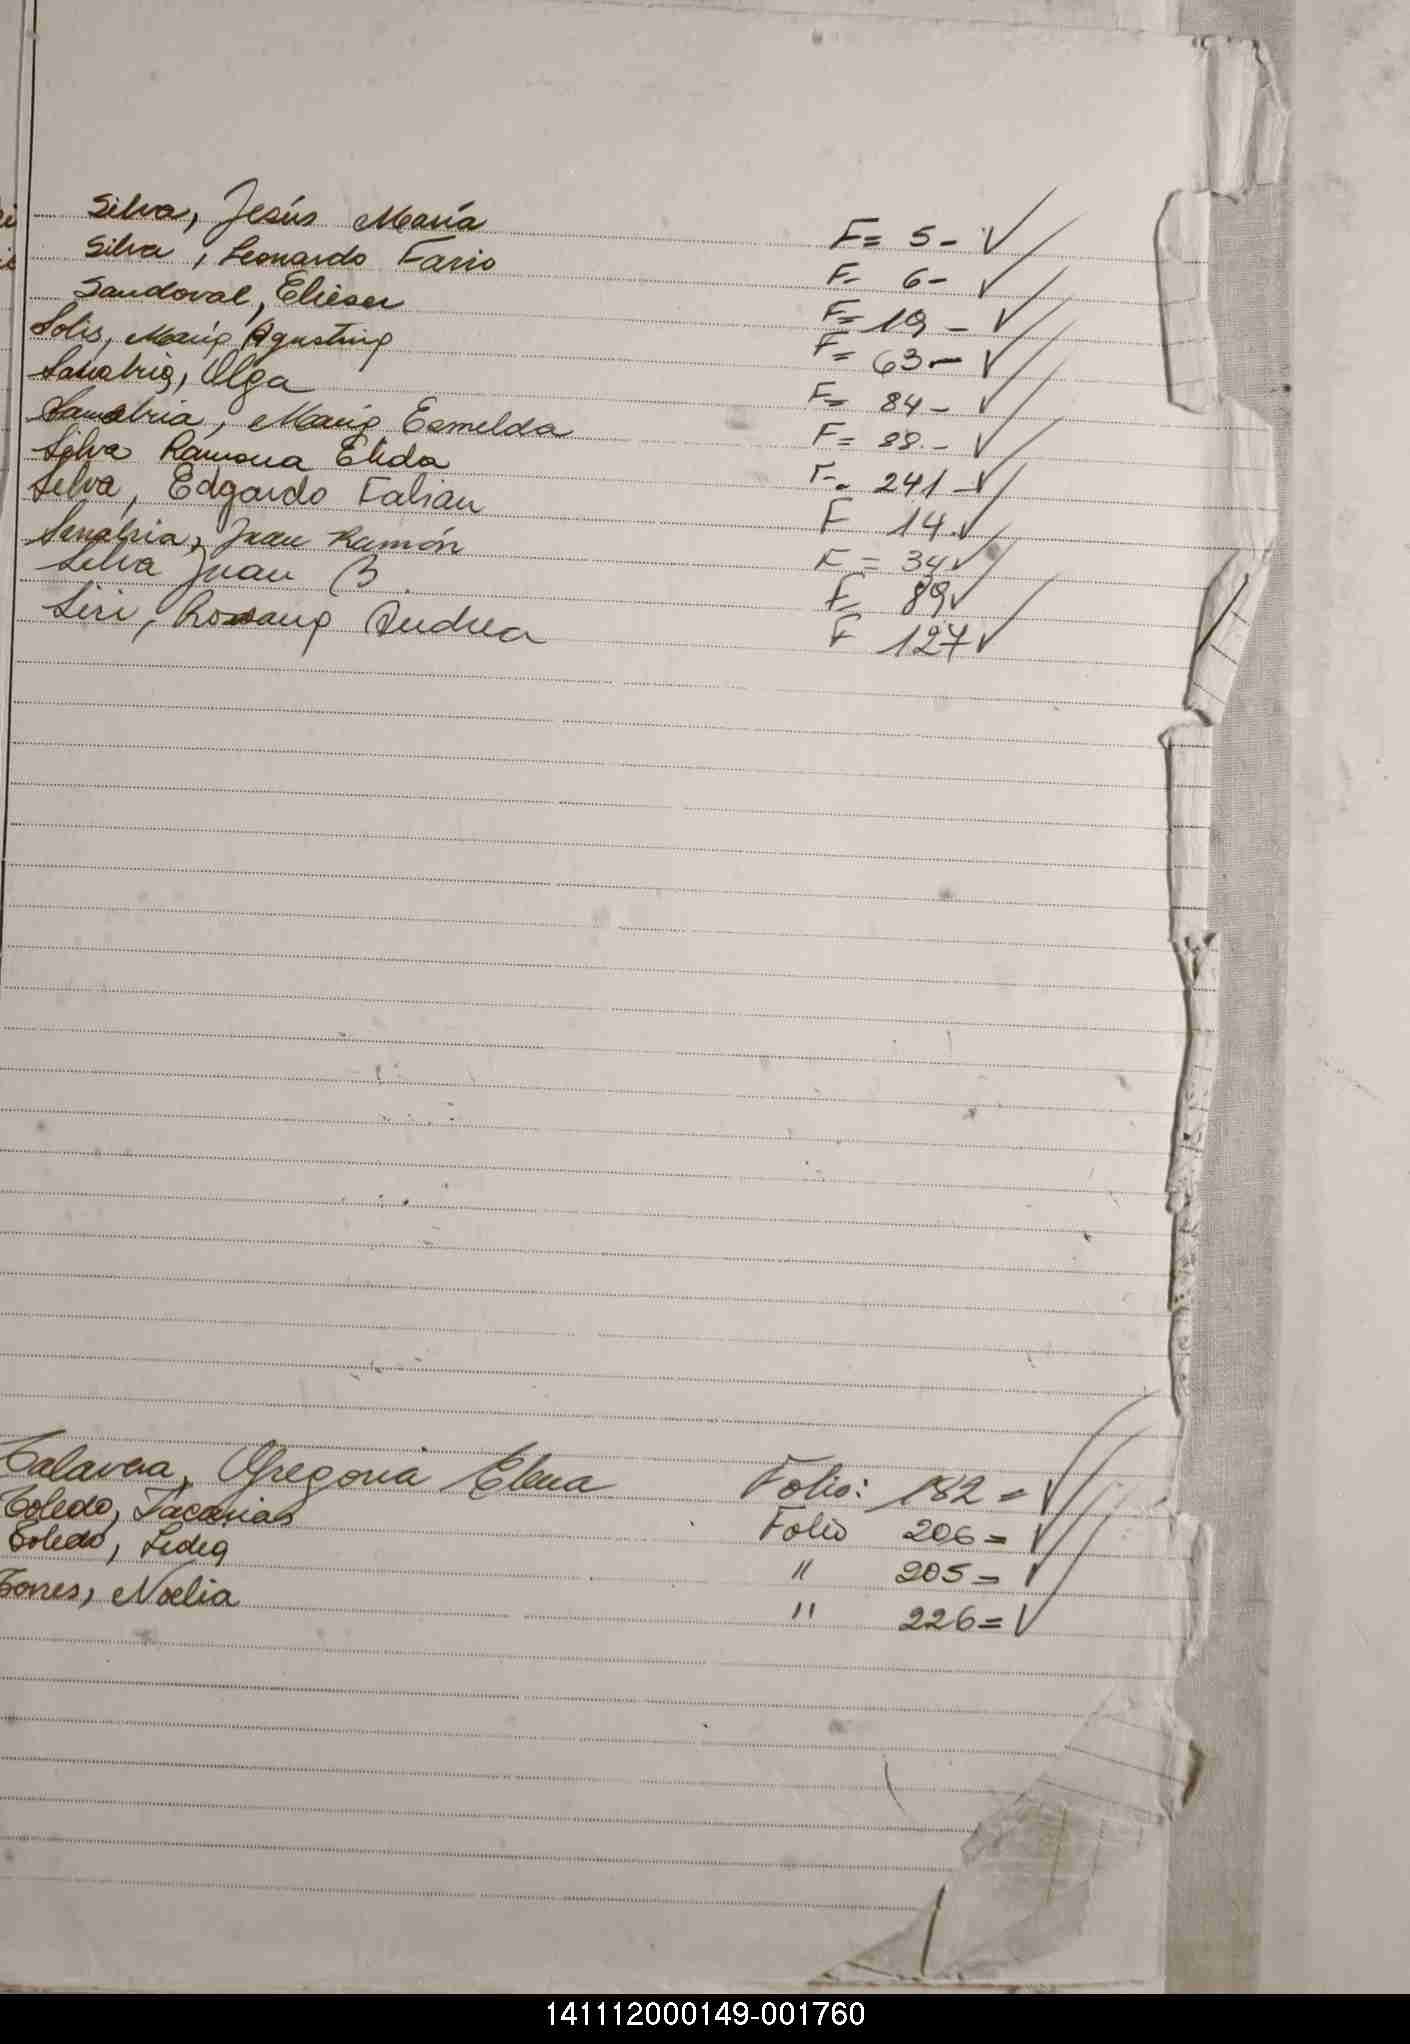 Silva, Jesús María F= 5- ✓
Silva, Leonardo Favio F= 6- ✓
Sandoval, Elieser F= 19- ✓
Solis, María Agustina F= 63- ✓
Sanabria, Olga F= 84- ✓
Sanabria, María Esmelda F= 88.- ✓
Silva Ramona Elida F= 241- ✓
Silva, Edgardo Fabian F 14. ✓
Sanabria, Juan Ramón F= 34 ✓
Silva Juan B. F= 89 ✓
Siri, Rossana Andrea F 127 ✓
Talavera, Gregoria Elena Folio: 182= ✓
Toledo, Zacarias Folio 206= ✓
Toledo, Lidia " 205= ✓
Torres, Noelia " 226= ✓
141112000149-001760